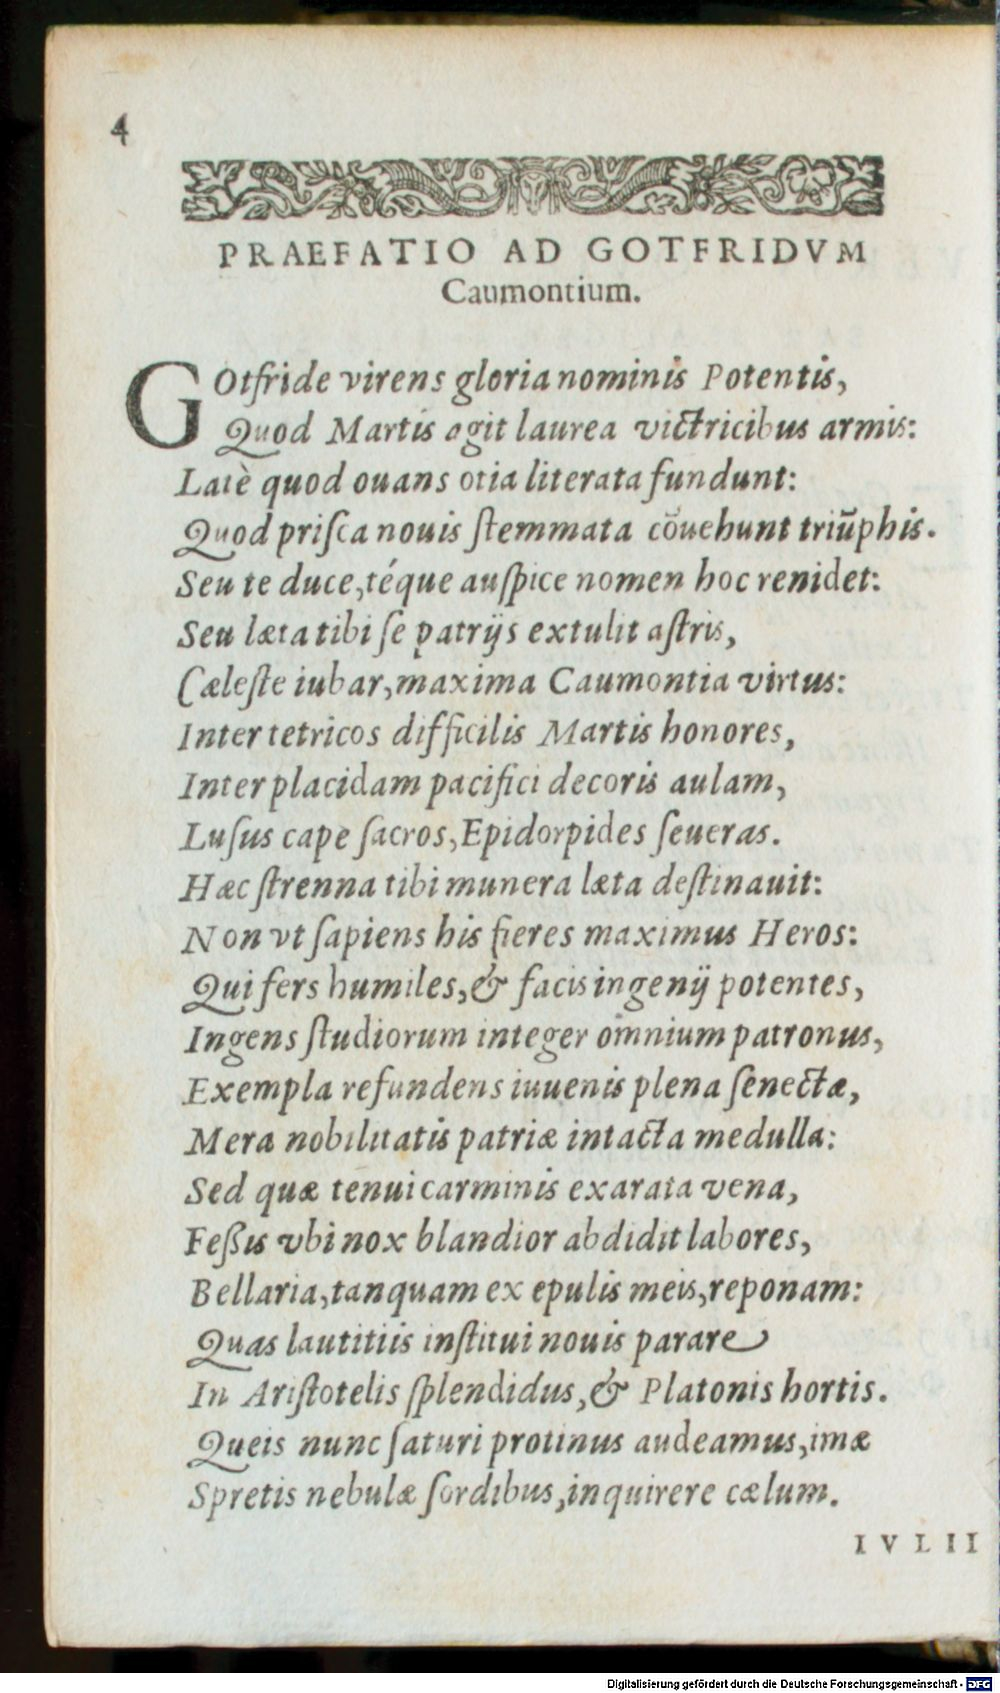 4
PRAEFATIO AD GOTFRIDVM
Caumontium.
GOtfride virens gloria nominis Potentis,
Quod Martis agit laurea victricibus armis:
Latè quod ouans otia literata fundunt:
Quod priſca nouis ſtemmata cōuehunt triūphis.
Seu te duce, téque auſpice nomen hoc renidet:
Seu læta tibi ſe patrijs extulit aſtris,
Cæleſte iubar, maxima Caumontia virtus:
Inter tetricos difficilis Martis honores,
Inter placidam pacifici decoris aulam,
Luſus cape ſacros, Epidorpides ſeueras.
Hæc ſtrenna tibi munera læta deſtinauit:
Non vt ſapiens his fieres maximus Heros:
Qui fers humiles, & facis ingenij potentes,
Ingens ſtudiorum integer omnium patronus,
Exempla refundens iuuenis plena ſenectæ,
Mera nobilitatis patriæ intacta medulla:
Sed quæ tenui carminis exarata vena,
Feßis vbi nox blandior abdidit labores,
Bellaria, tanquam ex epulis meis, reponam:
Quas lautitiis inſtitui nouis parare
In Ariſtotelis ſplendidus, & Platonis hortis.
Queis nunc ſaturi protinus audeamus, imæ
Spretis nebulæ ſordibus, inquirere cælum.
IVLII
Digitalisierung gefördert durch die Deutsche Forschungsgemeinschaft - DFG